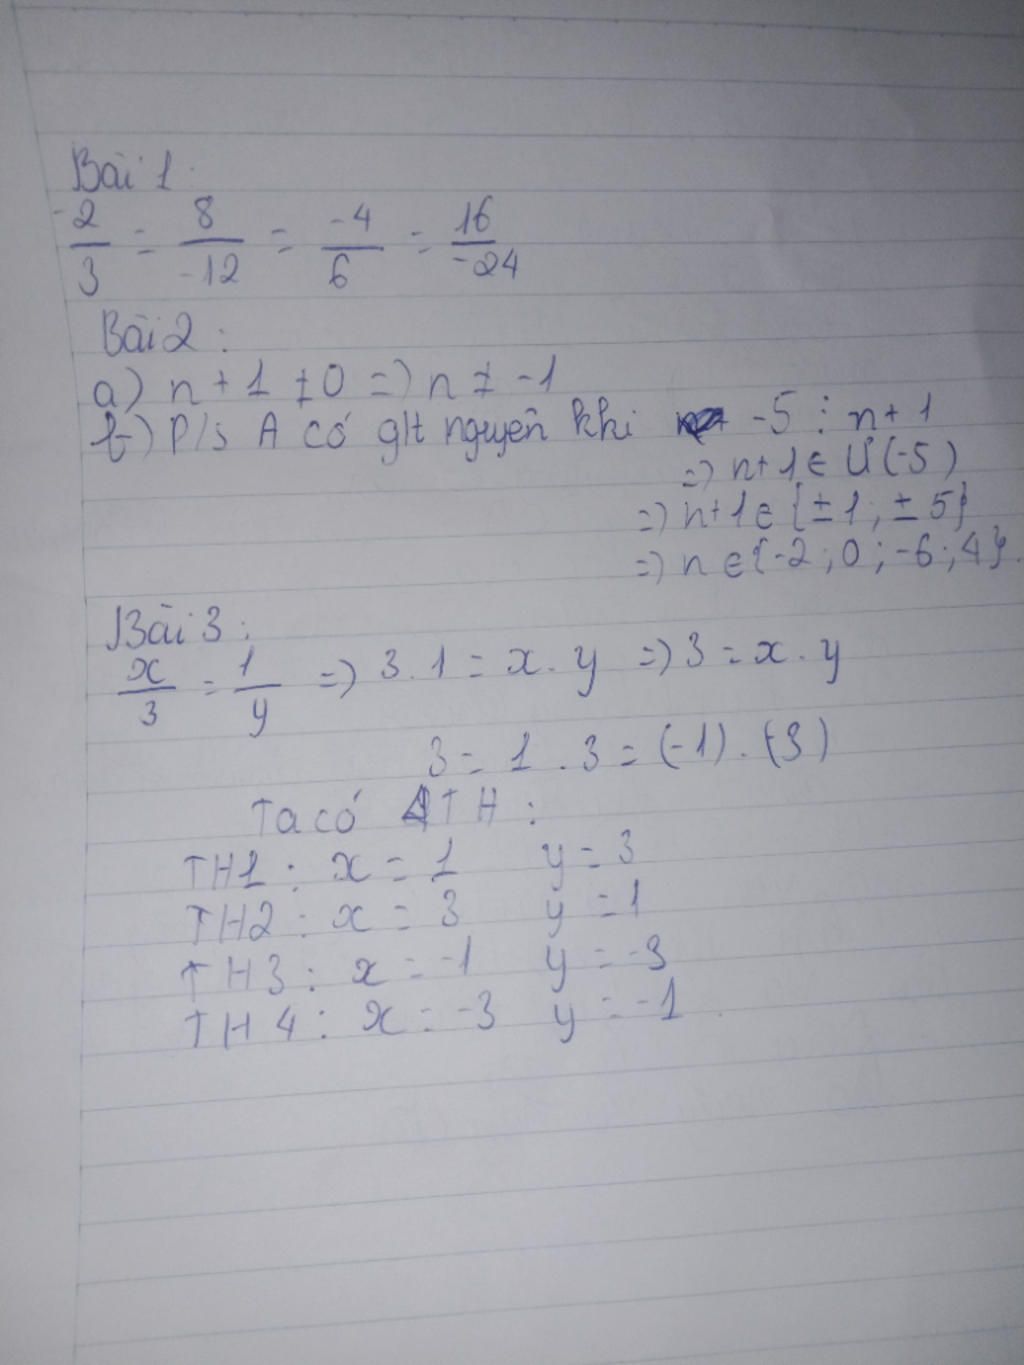 Bài 1:
-2/3 = 8/-12 = -4/6 = 16/-24
Bài 2:
a) n + 1 ≠ 0 => n ≠ -1
b) P/s A có gtt nguyên khi -5 ⋮ n + 1
=> n + 1 ∈ Ư(-5)
=> n + 1 ∈ {±1; ±5}
=> n ∈ {-2; 0; -6; 4}.
Bài 3:
x/3 = 1/y => 3.1 = x.y => 3 = x.y
3 = 1.3 = (-1).(-3)
Ta có 4TH:
TH1: x = 1 y = 3
TH2: x = 3 y = 1
TH3: x = -1 y = -3
TH4: x = -3 y = -1.